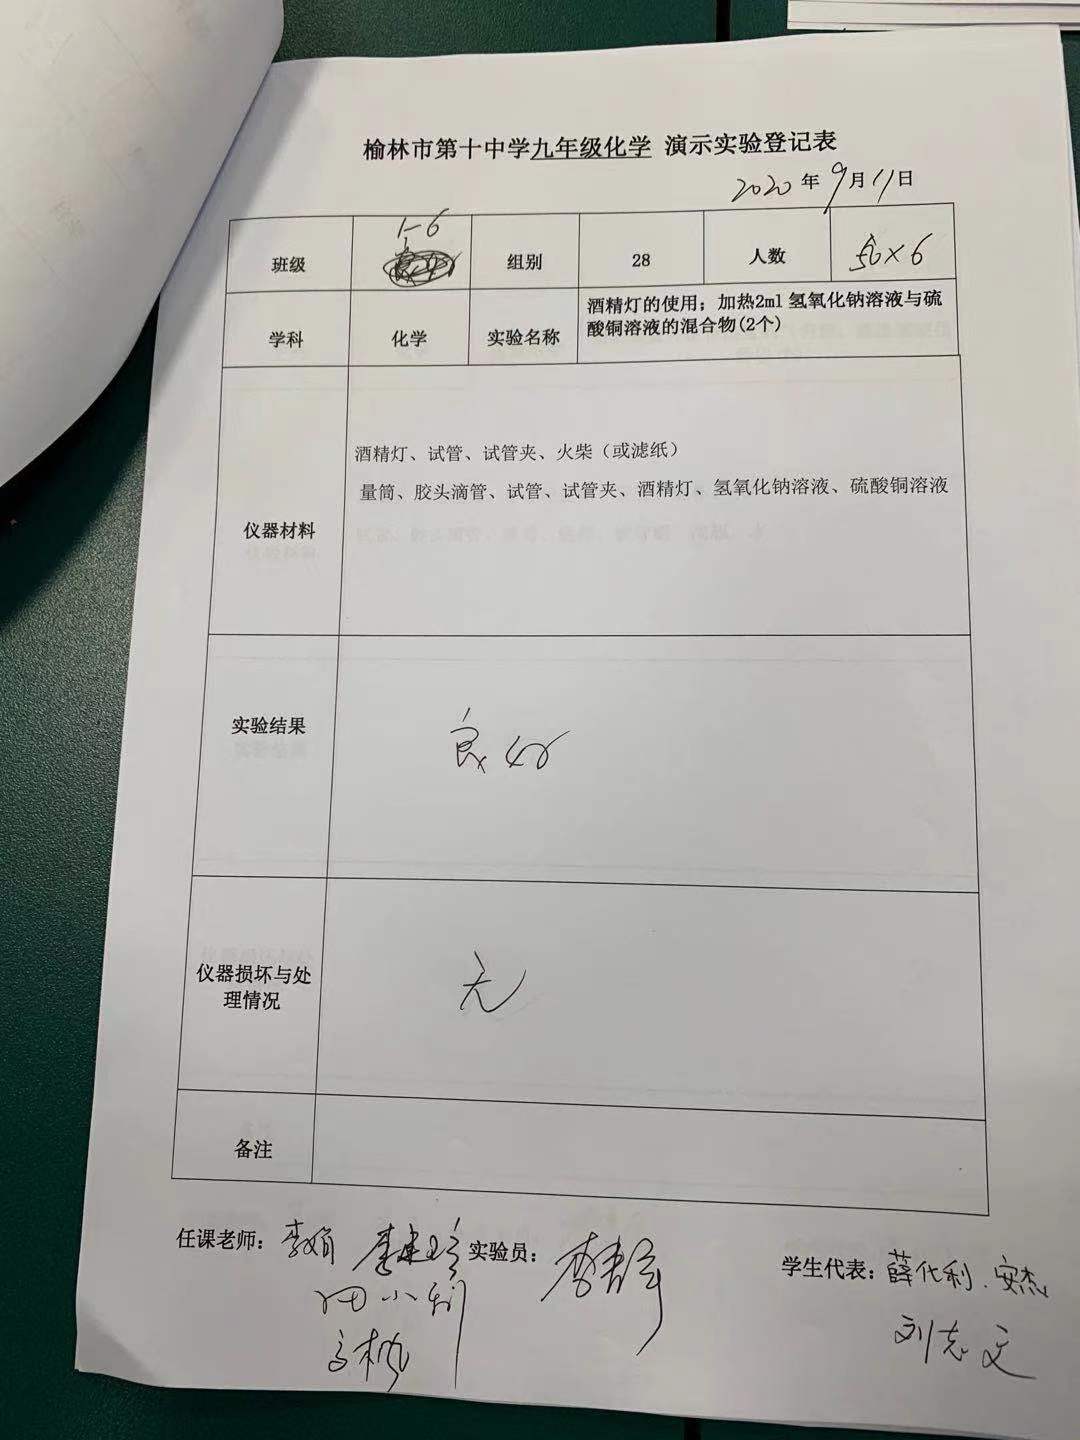 榆林市第十中学九年级化学 演示实验登记表
2020 年 9 月 11 日
班级 1-6 组别 28 人数 50×6
学科 化学 实验名称 酒精灯的使用；加热2ml 氢氧化钠溶液与硫
酸铜溶液的混合物(2个)
酒精灯、试管、试管夹、火柴（或滤纸）
量筒、胶头滴管、试管、试管夹、酒精灯、氢氧化钠溶液、硫酸铜溶液
仪器材料
实验结果 良好
仪器损坏与处
理情况
无
备注
任课老师： 李娟 实验员： 学生代表：薛化利、安杰
田小利
刘志文